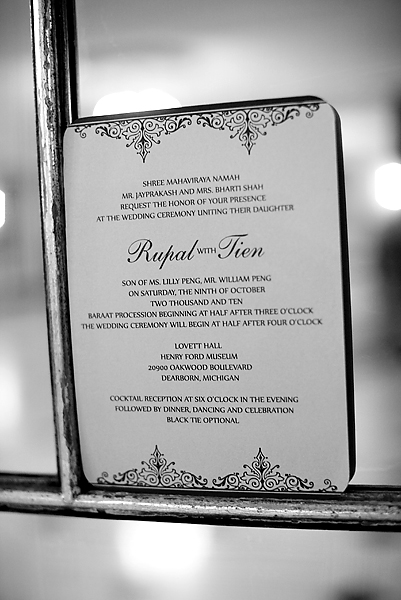 SHREE MAHAVIRAYA NAMAH
MR. JAYPRAKASH AND MRS. BHARTI SHAH
REQUEST THE HONOR OF YOUR PRESENCE
AT THE WEDDING CEREMONY UNITING THEIR DAUGHTER
Rupal WITH Tien
SON OF MS. LILLY PENG, MR. WILLIAM PENG
ON SATURDAY, THE NINTH OF OCTOBER
TWO THOUSAND AND TEN
BARAAT PROCESSION BEGINNING AT HALF AFTER THREE O'CLOCK
THE WEDDING CEREMONY WILL BEGIN AT HALF AFTER FOUR O'CLOCK
LOVETT HALL
HENRY FORD MUSEUM
20900 OAKWOOD BOULEVARD
DEARBORN, MICHIGAN
COCKTAIL RECEPTION AT SIX O'CLOCK IN THE EVENING
FOLLOWED BY DINNER, DANCING AND CELEBRATION
BLACK TIE OPTIONAL